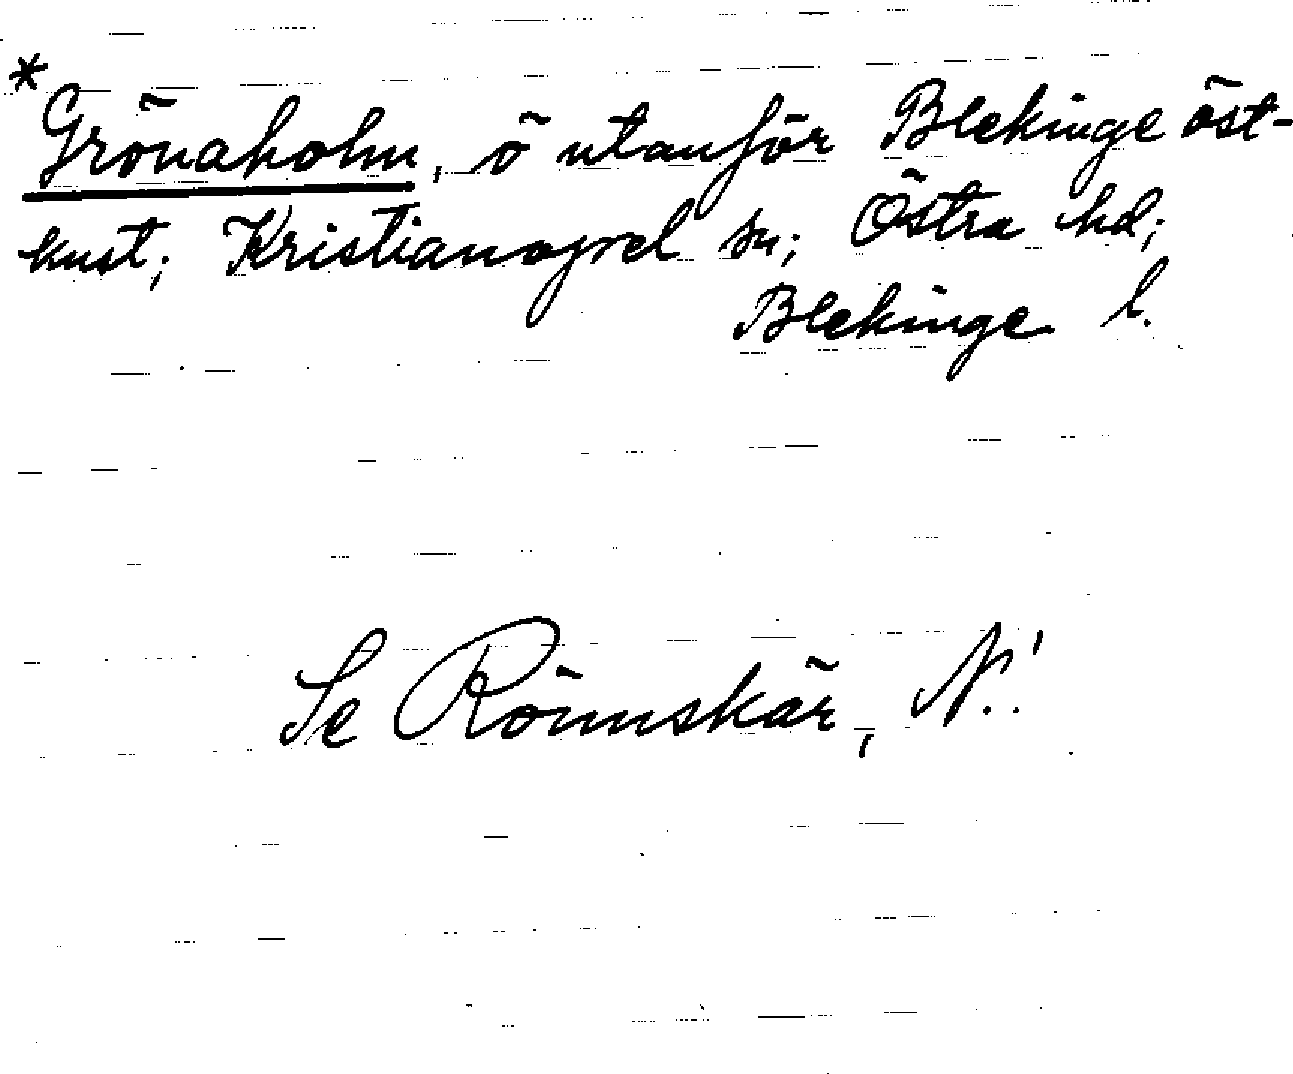 *Grönaholm, ö utanför Blekinge öst-
kust; Kristianopel sn; Östra hd;
Blekinge l.
Se Rönnskär, N.!